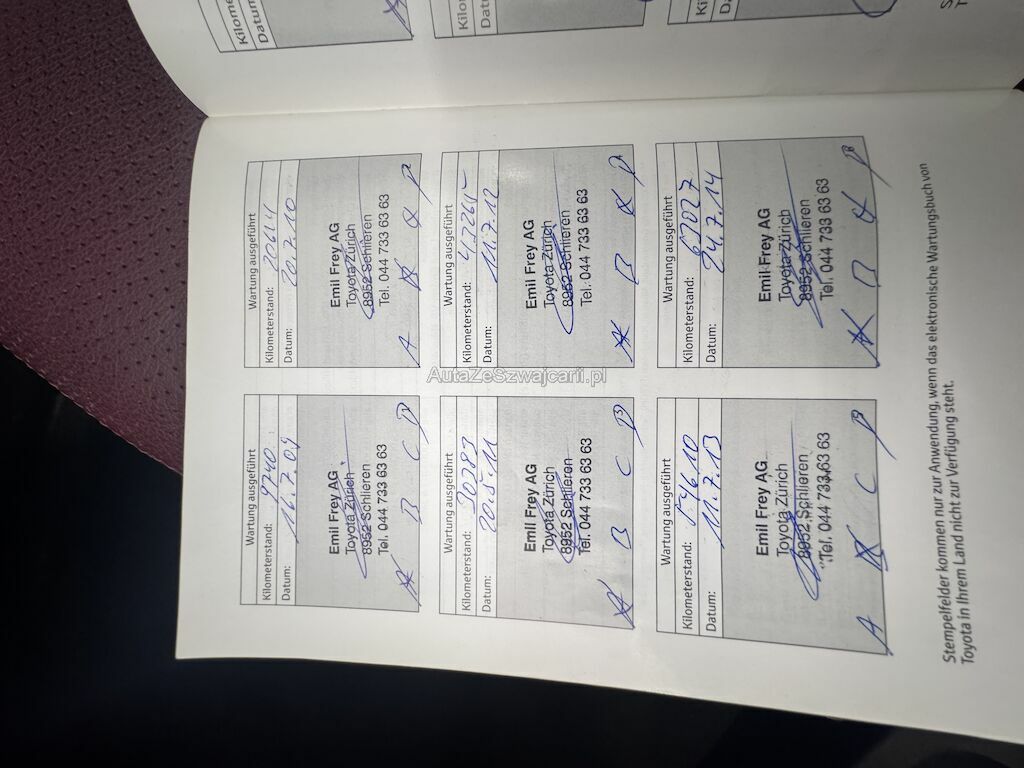 Wartung ausgeführt
Kilometerstand: 9240
Datum: 16.7.09
Emil Frey AG
Toyota Zürich
8952 Schlieren
Tel. 044 733 63 63
A B C D
Wartung ausgeführt
Kilometerstand: 20614
Datum: 20.7.10
Emil Frey AG
Toyota Zürich
8952 Schlieren
Tel. 044 733 63 63
A B C D
Wartung ausgeführt
Kilometerstand: 30283
Datum: 20.5.11
Emil Frey AG
Toyota Zürich
8952 Schlieren
Tel. 044 733 63 63
A B C D
Wartung ausgeführt
Kilometerstand: 42265
Datum: 11.7.12
Emil Frey AG
Toyota Zürich
8952 Schlieren
Tel. 044 733 63 63
A B C D
Wartung ausgeführt
Kilometerstand: 54610
Datum: 11.7.13
Emil Frey AG
Toyota Zürich
8952 Schlieren
Tel. 044 733 63 63
A B C D
Wartung ausgeführt
Kilometerstand: 67027
Datum: 24.7.14
Emil Frey AG
Toyota Zürich
8952 Schlieren
Tel. 044 733 63 63
A B C D
Stempelfelder kommen nur zur Anwendung, wenn das elektronische Wartungsbuch von
Toyota in Ihrem Land nicht zur Verfügung steht.
Kilome
Datum
Kilo
Dat
Ki
D
AutaZeSzwajcarii.pl